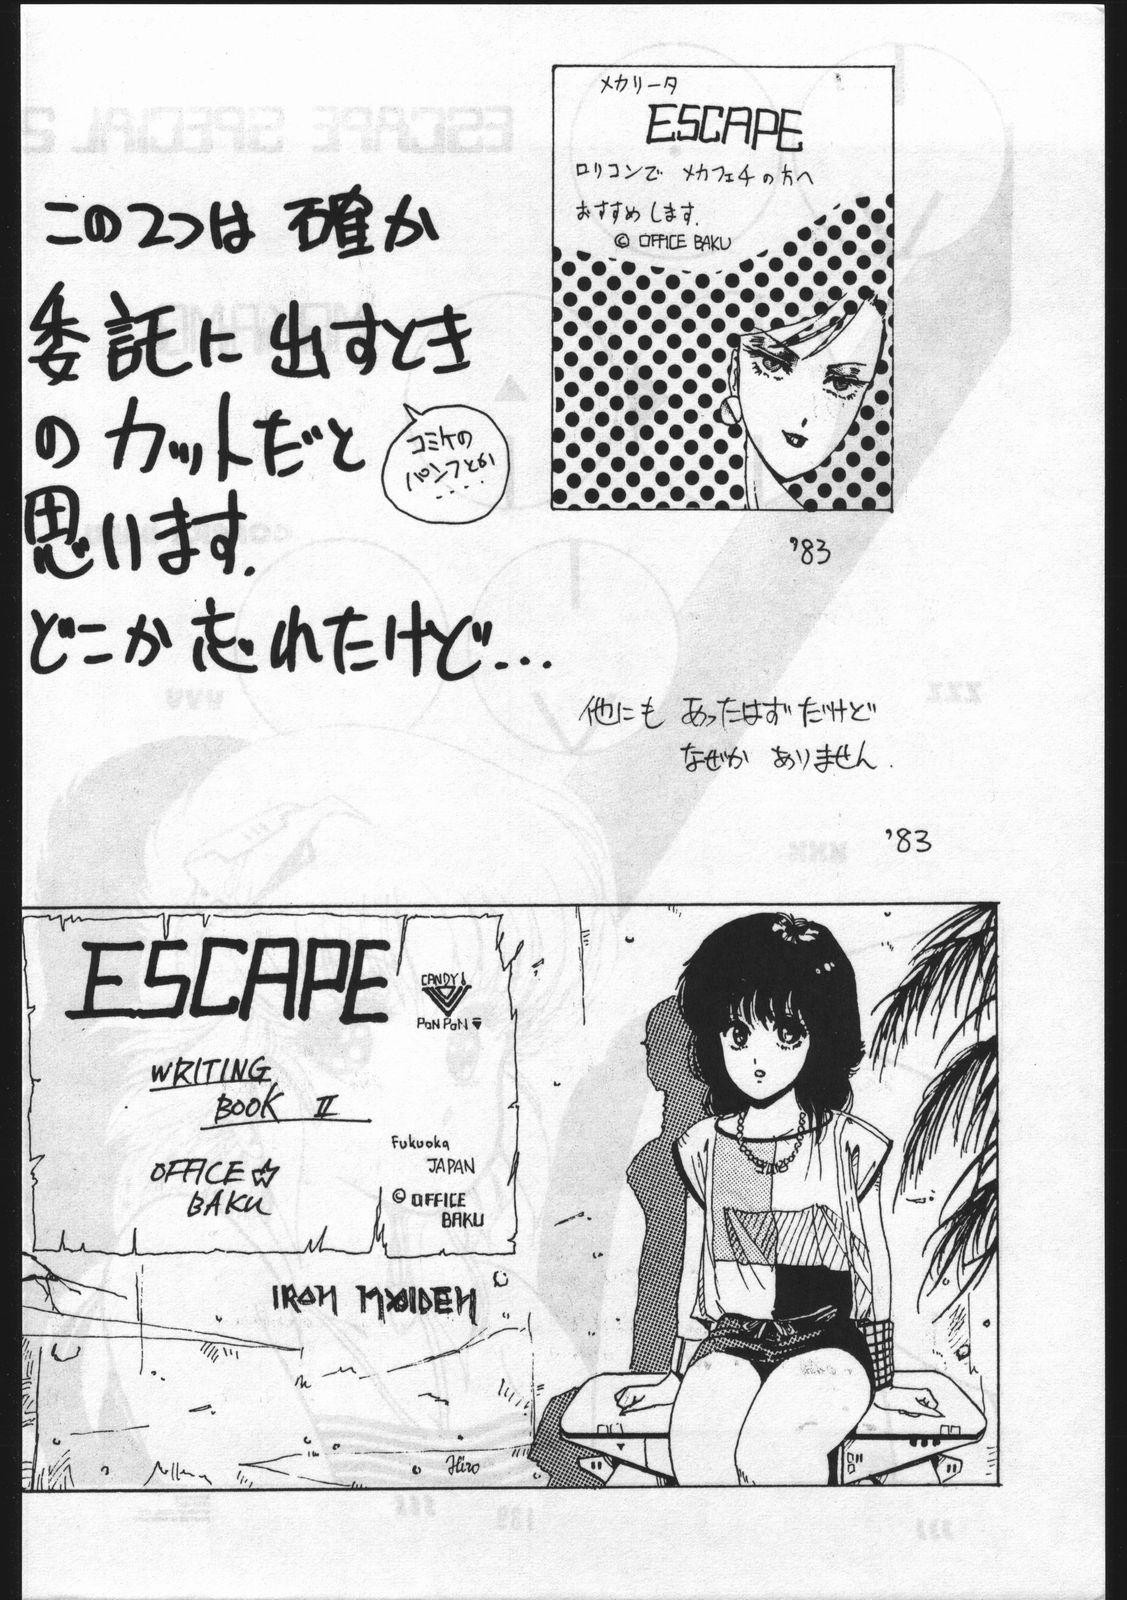 メカリータ
ESCAPE
ロリコンで メカフェチの方へ
おすすめします.
© OFFICE BAKU
'83
この2つは 確か
委託に出すとき
のカットだと
思います.
どこか忘れたけど...
コミケの
パンフとか
.....
他にも あったはずだけど
なぜか ありません.
'83
ESCAPE
CANDY!
PON PON
WRITING
BOOK II
OFFICE☆
BAKU
Fukuoka
JAPAN
© OFFICE
BAKU
IRON MAIDEN
Hiro